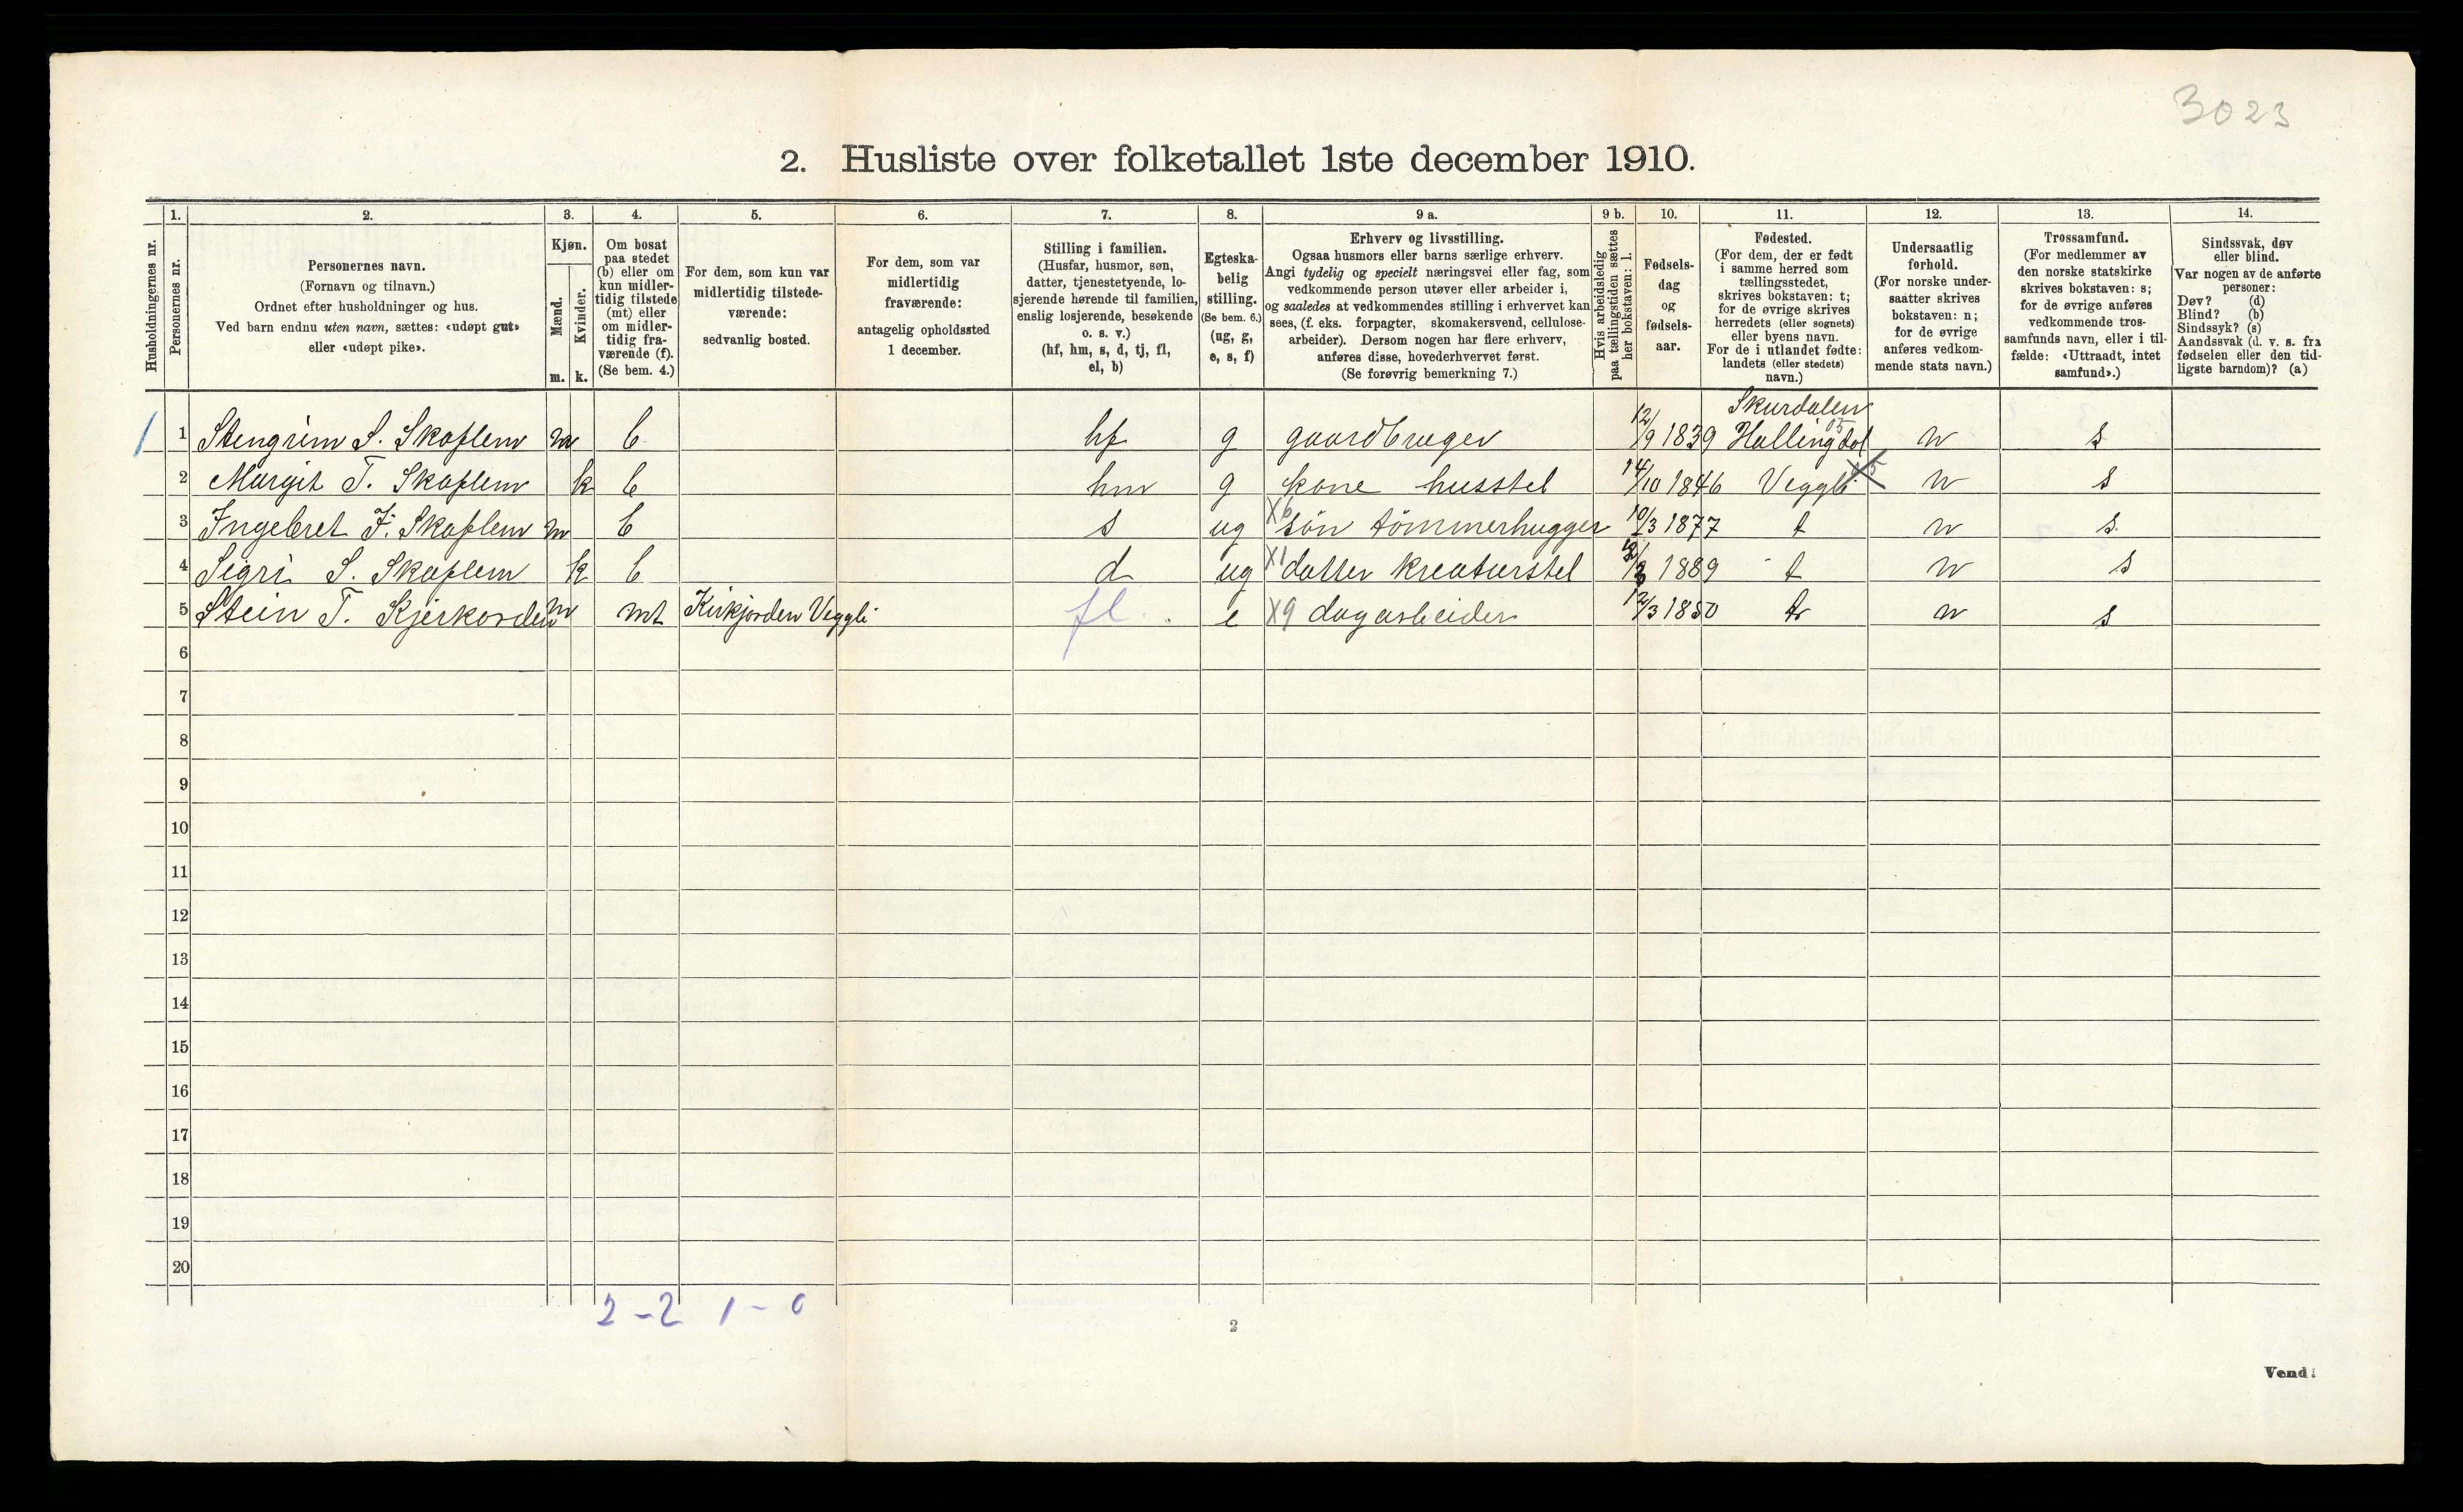 3023
2. Husliste over folketallet 1ste december 1910.
Husholdningernes nr.
1.
Personernes nr.
2.
Personernes navn.
(Fornavn og tilnavn.)
Ordnet efter husholdninger og hus.
Ved barn endnu uten navn, sættes: «udøpt gut»
eller «udøpt pike».
3.
Kjøn.
Mænd.
Kvinder.
m. k.
4.
Om bosat
paa stedet
(b) eller om
kun midler-
tidig tilstede
(mt) eller
om midler-
tidig fra-
værende (f).
(Se bem. 4.)
5.
For dem, som kun var
midlertidig tilstede-
værende:
sedvanlig bosted.
6.
For dem, som var
midlertidig
fraværende:
antagelig opholdssted
1 december.
7.
Stilling i familien.
(Husfar, husmor, søn,
datter, tjenestetyende, lo-
sjerende hørende til familien,
enslig losjerende, besøkende
o. s. v.)
(hf, hm, s, d, tj, fl,
el, b)
8.
Egteska-
belig
stilling.
(Se bem. 6.)
(ug, g,
e, s, f)
9 a.
Erhverv og livsstilling.
Ogsaa husmors eller barns særlige erhverv.
Angi tydelig og specielt næringsvei eller fag, som
vedkommende person utøver eller arbeider i,
og saaledes at vedkommendes stilling i erhvervet kan
sees, (f. eks. forpagter, skomakersvend, cellulose-
arbeider). Dersom nogen har flere erhverv,
anføres disse, hovederhvervet først.
(Se forøvrig bemerkning 7.)
9 b.
Hvis arbeidsledig
paa tællingstiden sættes
her bokstaven: l.
10.
Fødsels-
dag
og
fødsels-
aar.
11.
Fødested.
(For dem, der er født
i samme herred som
tællingsstedet,
skrives bokstaven: t;
for de øvrige skrives
herredets (eller sognets)
eller byens navn.
For de i utlandet fødte:
landets (eller stedets)
navn.)
12.
Undersaatlig
forhold.
(For norske under-
saatter skrives
bokstaven: n;
for de øvrige
anføres vedkom-
mende stats navn.)
13.
Trossamfund.
(For medlemmer av
den norske statskirke
skrives bokstaven: s;
for de øvrige anføres
vedkommende tros-
samfunds navn, eller i til-
fælde: «Uttraadt, intet
samfund».)
14.
Sindssvak, døv
eller blind.
Var nogen av de anførte
personer:
Døv? (d)
Blind? (b)
Sindssyk? (s)
Aandssvak (d. v. s. fra
fødselen eller den tid-
ligste barndom)? (a)
Skurdalen
1 1 Stengrim S. Skaflem m b hf g gaardbruger 12/9 1839 Hallingdal n s
2 Margit T. Skaflem k b hm g kone husstel 14/10 1846 Veggli n s
3 Ingebret F. Skaflem m b s ug X6 søn tømmerhugger 10/3 1877 t n s
4 Sigri S. Skaflem k b d ug X1 datter kreaturstel 1889 t n s
5 Stein T. Kjerkorden m mt Kirkjorden Veggli fl. e X9 dagarbeider 12/3 1850 n s
6
7
8
9
10
11
12
13
14
15
16
17
18
19
20
2-2 1-0
2
Vend!